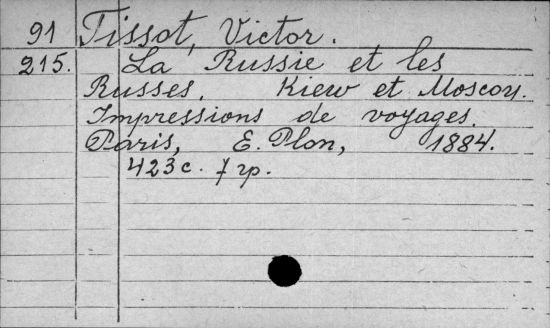 91 Tissot, Victor.
215. La Russie et les
Russes. Kiew et Moscou.
Impressions de voyages.
Paris, E. Plon, 1884.
423 c. 7 rp.